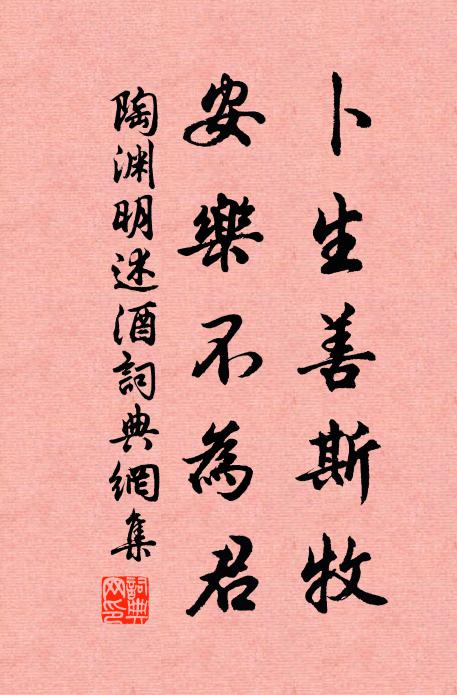 卜生善斯牧
安樂不為君
陶渊明述酒詞典網集
詞典网印